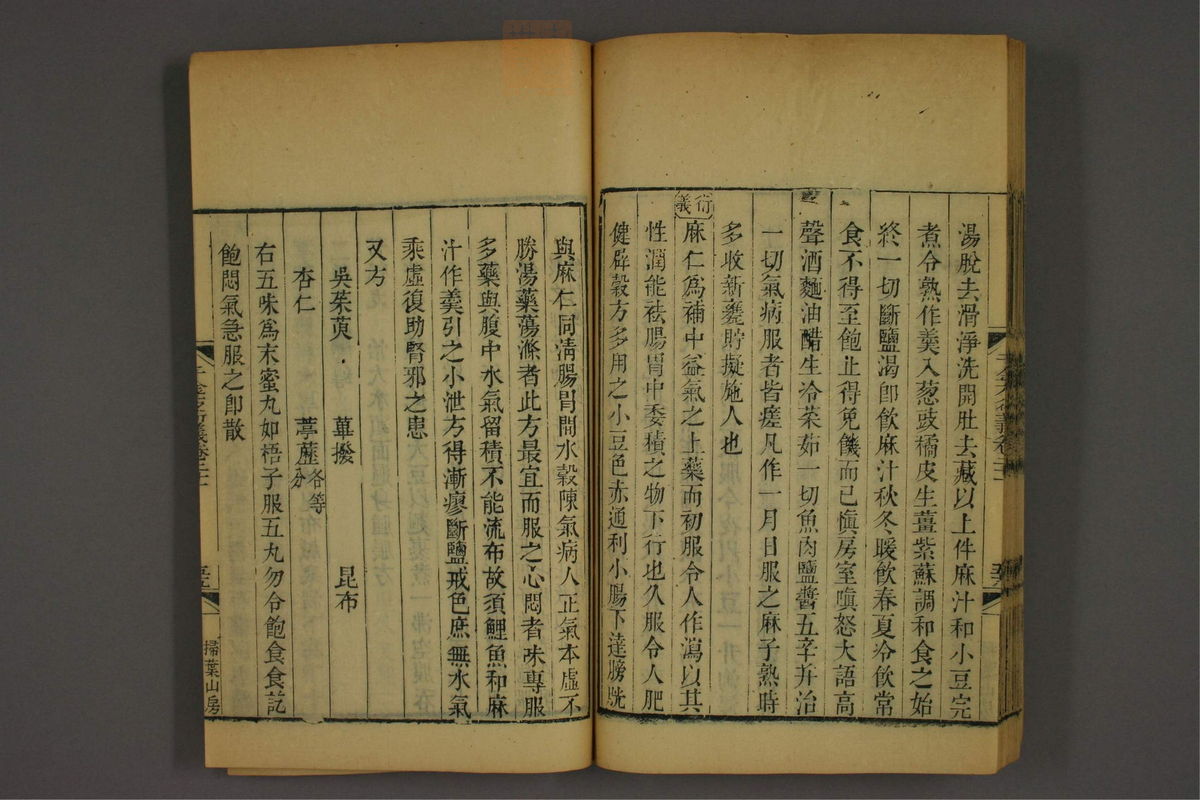 湯脫去滑淨洗開肚去藏以上件麻汁和小豆完
煮令熟作羹入葱豉橘皮生薑紫蘇調和食之始
終一切斷鹽渴卽飲麻汁秋冬暖飲春夏冷飲常
食不得至飽止得免饑而已愼房室嗔怒大語高
聲酒麵油醋生冷菜茹一切魚肉鹽醬五辛幷治
一切氣病服者皆瘥凡作一月日服之麻子熟時
多收新甕貯擬施人也
衍義
麻仁爲補中益氣之上藥而初服令人作瀉以其
性潤能祛腸胃中委積之物下行也久服令人肥
健辟穀方多用之小豆色赤通利小腸下達膀胱
與麻仁同淸腸胃間水穀陳氣病人正氣本虛不
勝湯藥蕩滌者此方最宜而服之心悶者味專服
多藥與腹中水氣留積不能流布故須鯉魚和麻
汁作羹引之小泄方得漸瘳斷鹽戒色庶無水氣
乘虛復助腎邪之患
又方
吳茱萸 蓽撥 昆布
杏仁 葶藶各等分
右五味爲末蜜丸如梧子服五丸勿令飽食食訖
飽悶氣急服之卽散
千金方衍義卷二十一
掃葉山房